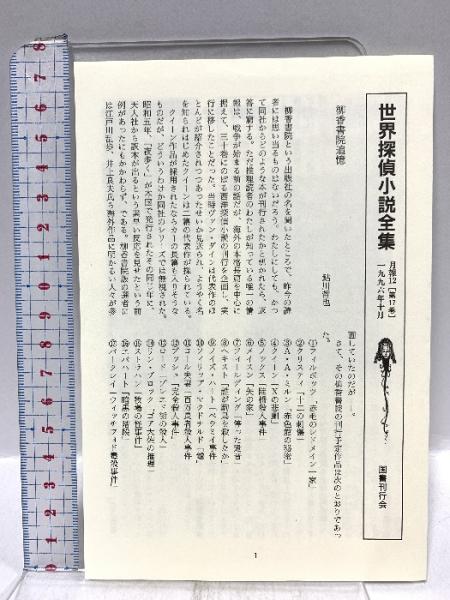 世界探偵小説全集
月報12 [第17巻]
一九九六年十月
国書刊行会
柳香書院追憶
鮎川哲也
柳香書院という出版社の名を聞いたところで、昨今の読
者には思い当るものはないだろう。わたしにしても、かつ
て同社からどのような本が刊行されたかと思かれたら、返
答に窮する。ただ推理読者のわたしが知っている唯一の情
報は、戦争が始まる前の話だが、海外の本格長篇を中心に
据えて、三十巻にのぼる西洋探偵小説の刊行を企画し、実
行に移したことだった。当時ヴァン・ダインは代表作のほ
とんどが紹介されつつあったせいか見送られ、ようやく名
を知られはじめたクイーンは二篇の代表作が採られている。
クイーン作品が採用されたならカーの長篇も入りそうな
ものだが、どういうわけか同社のシリーズでは無視された。
昭和五年、「夜歩く」が本国で発行されたその同じ年に、
天人社から訳本が出るという素早い反応を見せたという前
例があったにもかかわらず、である。柳香書院版の選者に
は江戸川乱歩、井上良夫氏ら海外作品に明かるい人々が参
画していたのだが――。
さて、その柳香書院の刊行予定作品は次のとおりであっ
た。
①フィルポッツ「赤毛のレドメイン一家」
②クリスティ「十二の刺傷」
③A・A・ミルン「赤色館の秘密」
④クイーン「Xの悲劇」
⑤ノックス「陸橋殺人事件」
⑥メイスン「矢の家」
⑦フィールディング「停った跫音」
⑧ヘキスト「誰が駒鳥を殺したか」
⑨ノイズ・ハート「ベラミイ事件」
⑩フィリップ・マクドナルド「鑢」
⑪コール夫妻「百万長者殺人事件」
⑫ブッシュ「完全殺人事件」
⑬ロード「プレード街の殺人」
⑭リン・ブロック「ゴア大佐の推理」
⑮スーデハン「牧場の怪事件」
⑯ラインハート「暗黒の階段」
⑰バークレイ「ウィッチフォード毒殺事件」
1